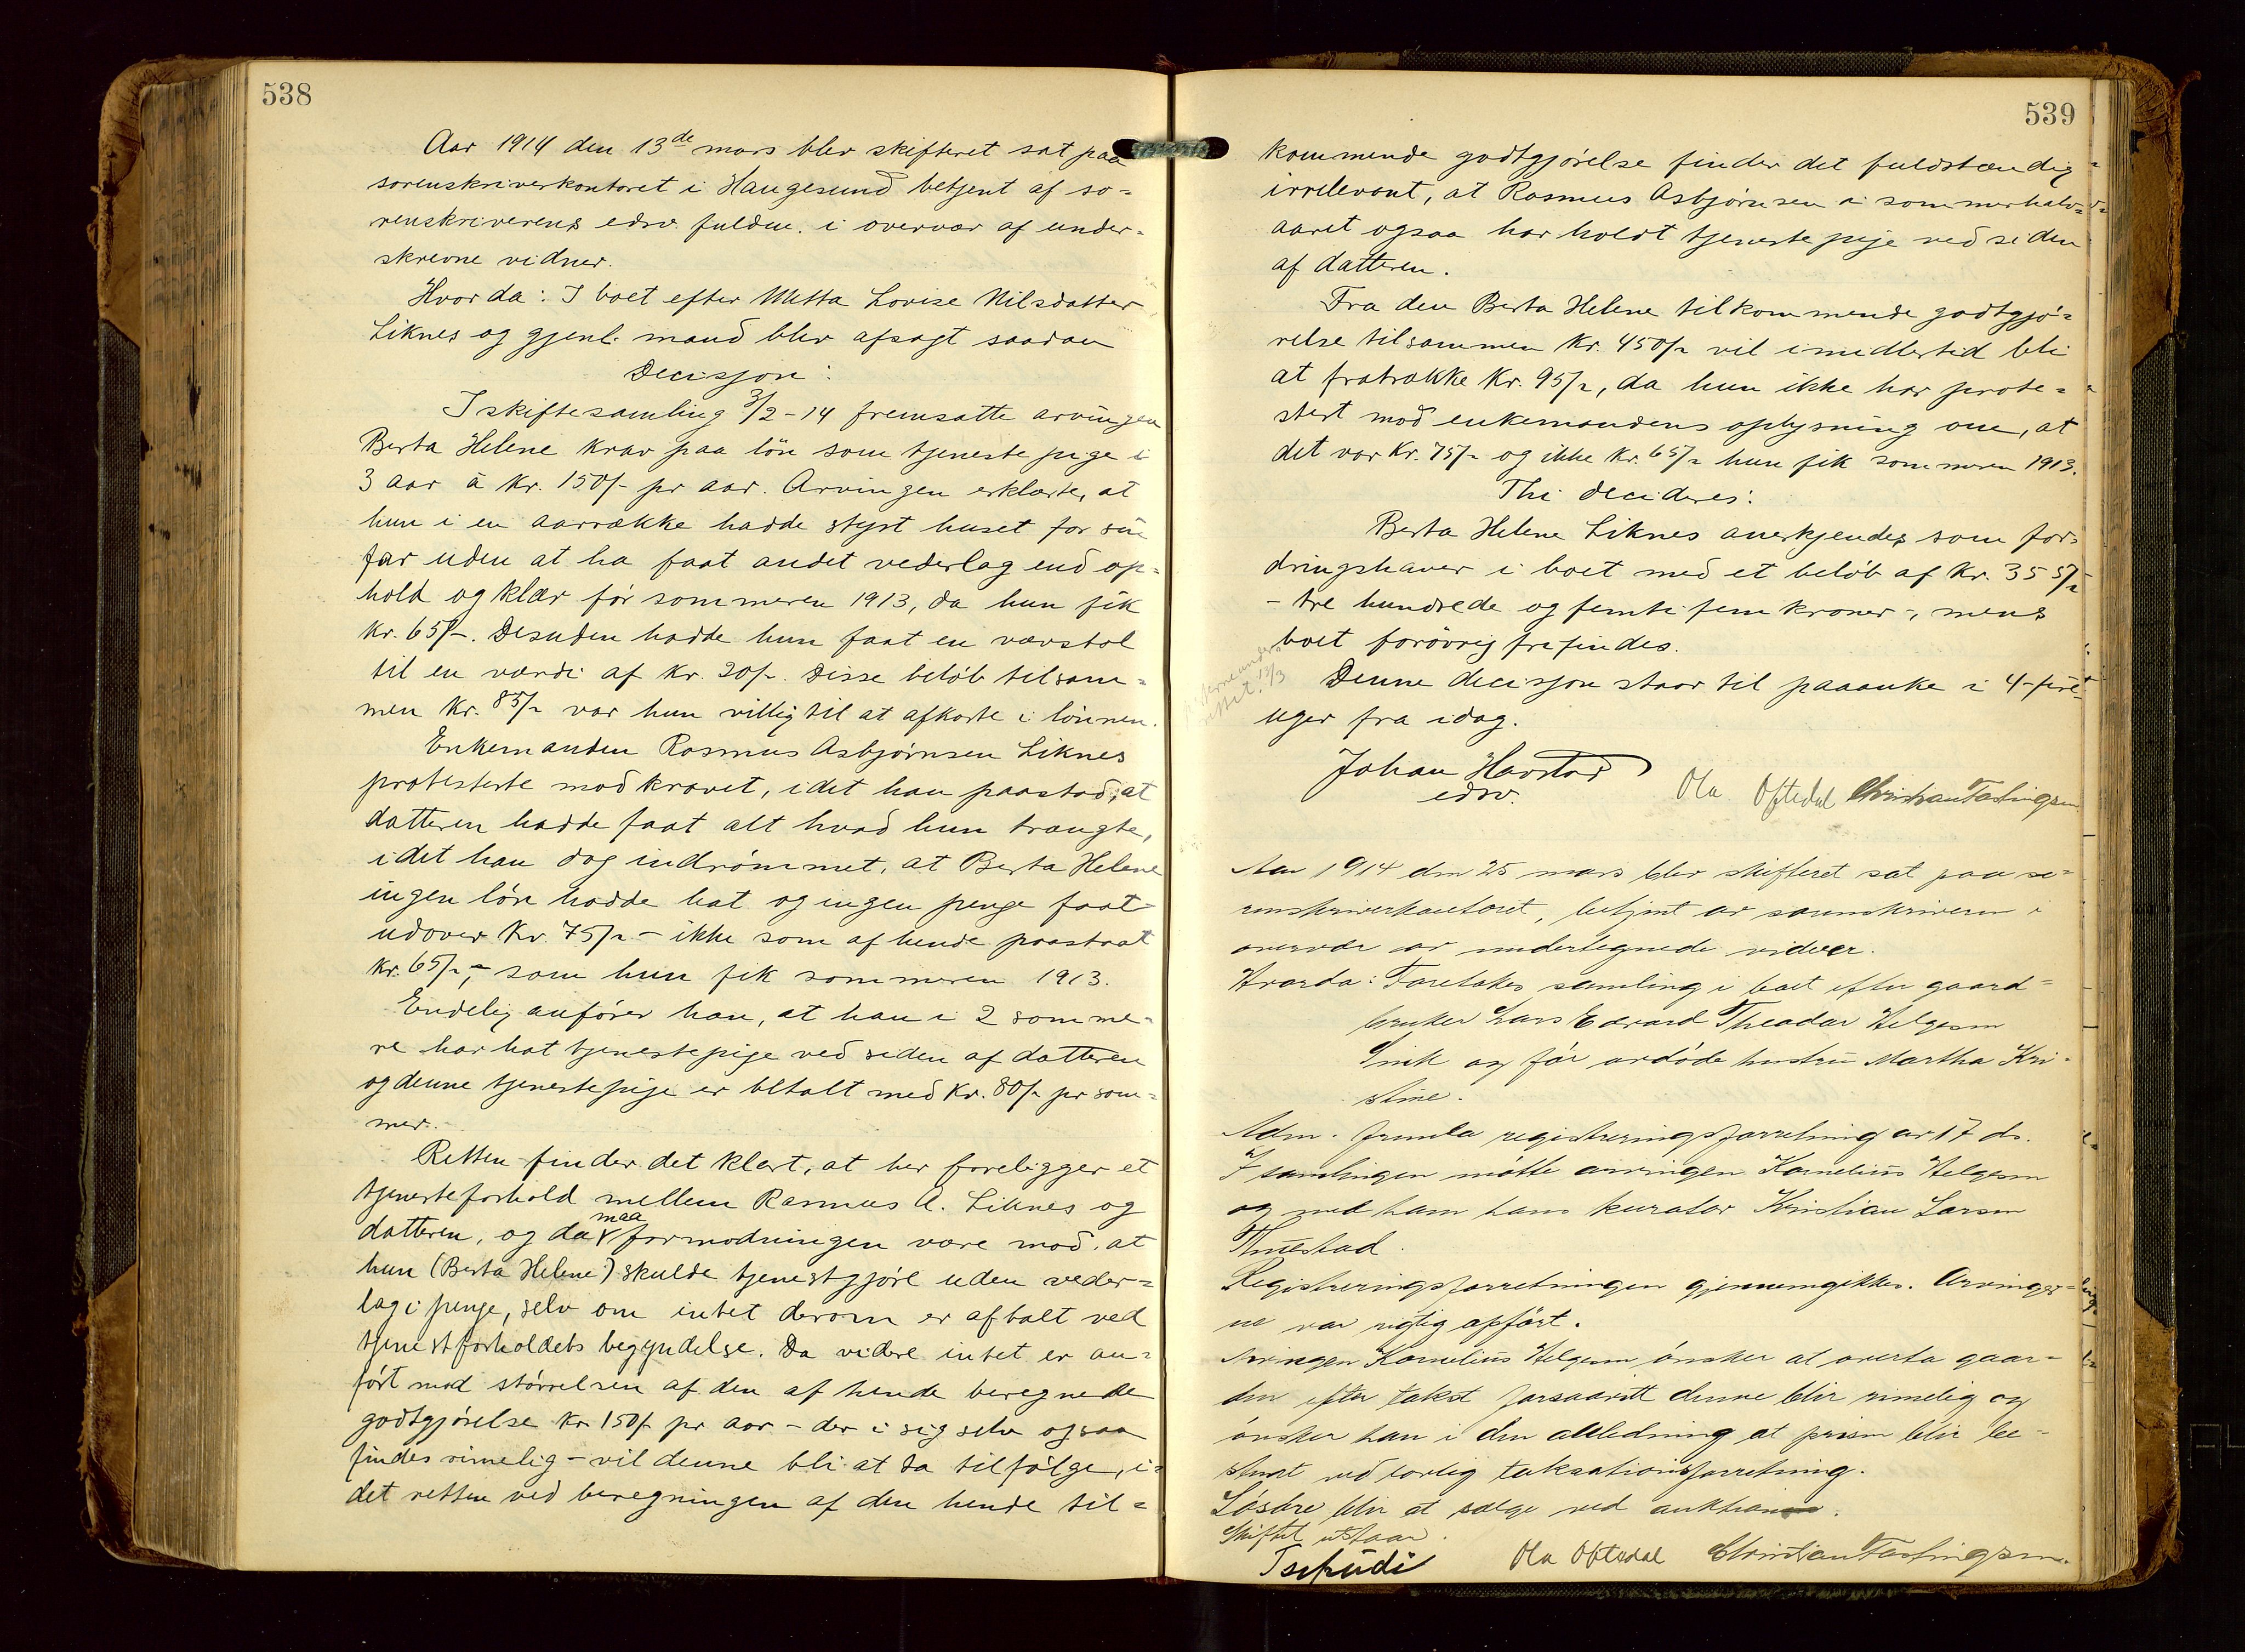 538
Aar 1914 den 13de mars blev skifteret sat paa
sorenskriverkontoret i Haugesund betjent af so-
renskriverens edsv. fuldm. i overvær af under-
skrevne vidner.
Hvorda: I boet efter Metta Lovise Nilsdatter
Liknes og gjenl. mand blev afsagt saadan
Decisjon:
I skiftesamling 3/2-14 fremsatte arvingen
Berta Helene krav paa løn som tjenestepige i
3 aar à kr. 150/- pr aar. Arvingen erklærte, at
hun i en aarrække hadde styrt huset for sin
far uden at ha faat andet vederlag end op-
hold og klær før sommeren 1913, da hun fik
kr. 65/-. Desuden hadde hun faat en vævstol
til en værdi af kr. 20/-. Disse beløb tilsam-
men kr. 85/- var hun villig til at afkorte i lønnen.
Enkemanden Rasmus Asbjørnsen Liknes
protesterte mod kravet, idet han paastod, at
datteren hadde faat alt hvad hun trængte,
idet han dog indrømmet, at Berta Helene
ingen løn hadde hat og ingen penge faat
udover kr. 75/- - ikke som af hende paastaat
kr. 65/-, - som hun fik sommeren 1913.
Endelig anfører han, at han i 2 somme-
re har hat tjenestepige ved siden af datteren
og denne tjenestepige er betalt med kr. 80/- pr som-
mer.
Retten finder det klart, at her foreligger et
tjenesteforhold mellem Rasmus A. Liknes og
datteren, og da maa formodningen være mod, at
hun (Berta Helene) skulde tjenestgjøre uden veder-
lag i penge, selv om intet derom er aftalt ved
tjenestforholdets begyndelse. Da videre intet er an-
ført mod størrelsen af den af hende beregnede
godtgjørelse kr 150/- pr aar - der i sig selv ogsaa
findes rimelig - vil denne bli at ta tilfølge, i-
det retten ved beregningen af den hende til-
539
kommende godtgjørelse finder det fuldstændig
irrelevant, at Rasmus Asbjørnsen i sommerhalv-
aaret ogsaa har holdt tjenestepige ved siden
af datteren.
Fra den Berta Helene tilkommende godtgjø-
relse tilsammen kr. 450/- vil imidlertid bli
at fratrække kr. 95/-, da hun ikke har prote-
stert mod enkemandens oplysning om, at
det var kr. 75/- og ikke kr. 65/- hun fik sommeren 1913.
Thi decideres:
Berta Helene Liknes anerkjendes som for-
dringshaver i boet med et beløb af kr. 355/-
- tre hundrede og femti fem kroner -, mens
boet forøvrig frifindes.
Denne decisjon staar til paaanke i 4-fire-
uger fra idag.
Johan Havstad
edsv.
Ola Oftedal Christian Tastingsen
Aar 1914 den 25 mars blev skifteret sat paa so-
renskriverkontoret, betjent av sorenskriveren i
overvær av undertegnede vidner.
Hvorda: Foretokes samling i boet efter gaard-
bruker Lars Edvard Theodor Helgesen
Sink og før avdøde hustru Martha Kri-
stine.
Adm. fremla registreringsforretning av 17 ds.
I samlingen møtte arvingen Kornelius Helgesen
og med ham hans kurator Kristian Larsen
Tuestad.
Registreringsforretningen gjennemgikkes. Arvinger-
ne var rigtig opført.
Arvingen Kornelius Helgesen ønsker at overta gaar-
den efter takst forsaavidt denne blir rimelig og
ønsker han i den anledning at prisen blir be-
stemt ved lovlig taksationsforretning.
Løsøre blir at sælge ved auktion.
Skiftet utstaar.
Tschudi Ola Oftedal Christian Tastingsen.